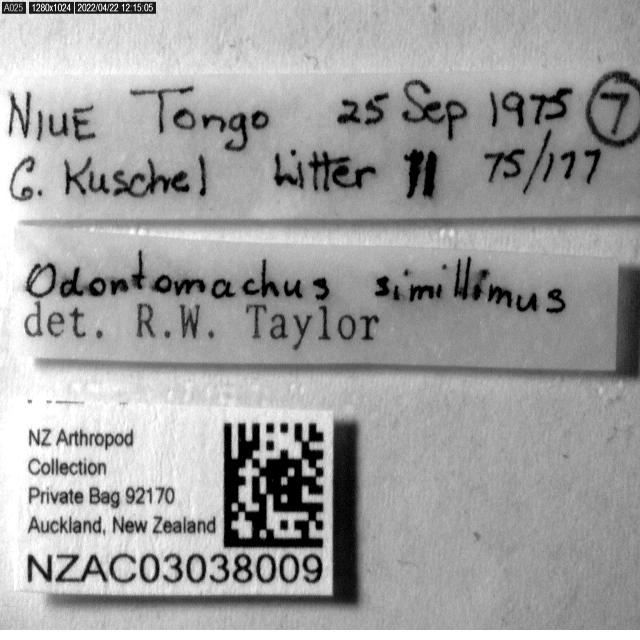 A025 1280x1024 2022/04/22 12:15:05
NIUE Tongo 25 Sep 1975 7
G. Kuschel Litter 75/177
Odontomachus simillimus
det. R.W. Taylor
NZ Arthropod
Collection
Private Bag 92170
Auckland, New Zealand
NZAC03038009